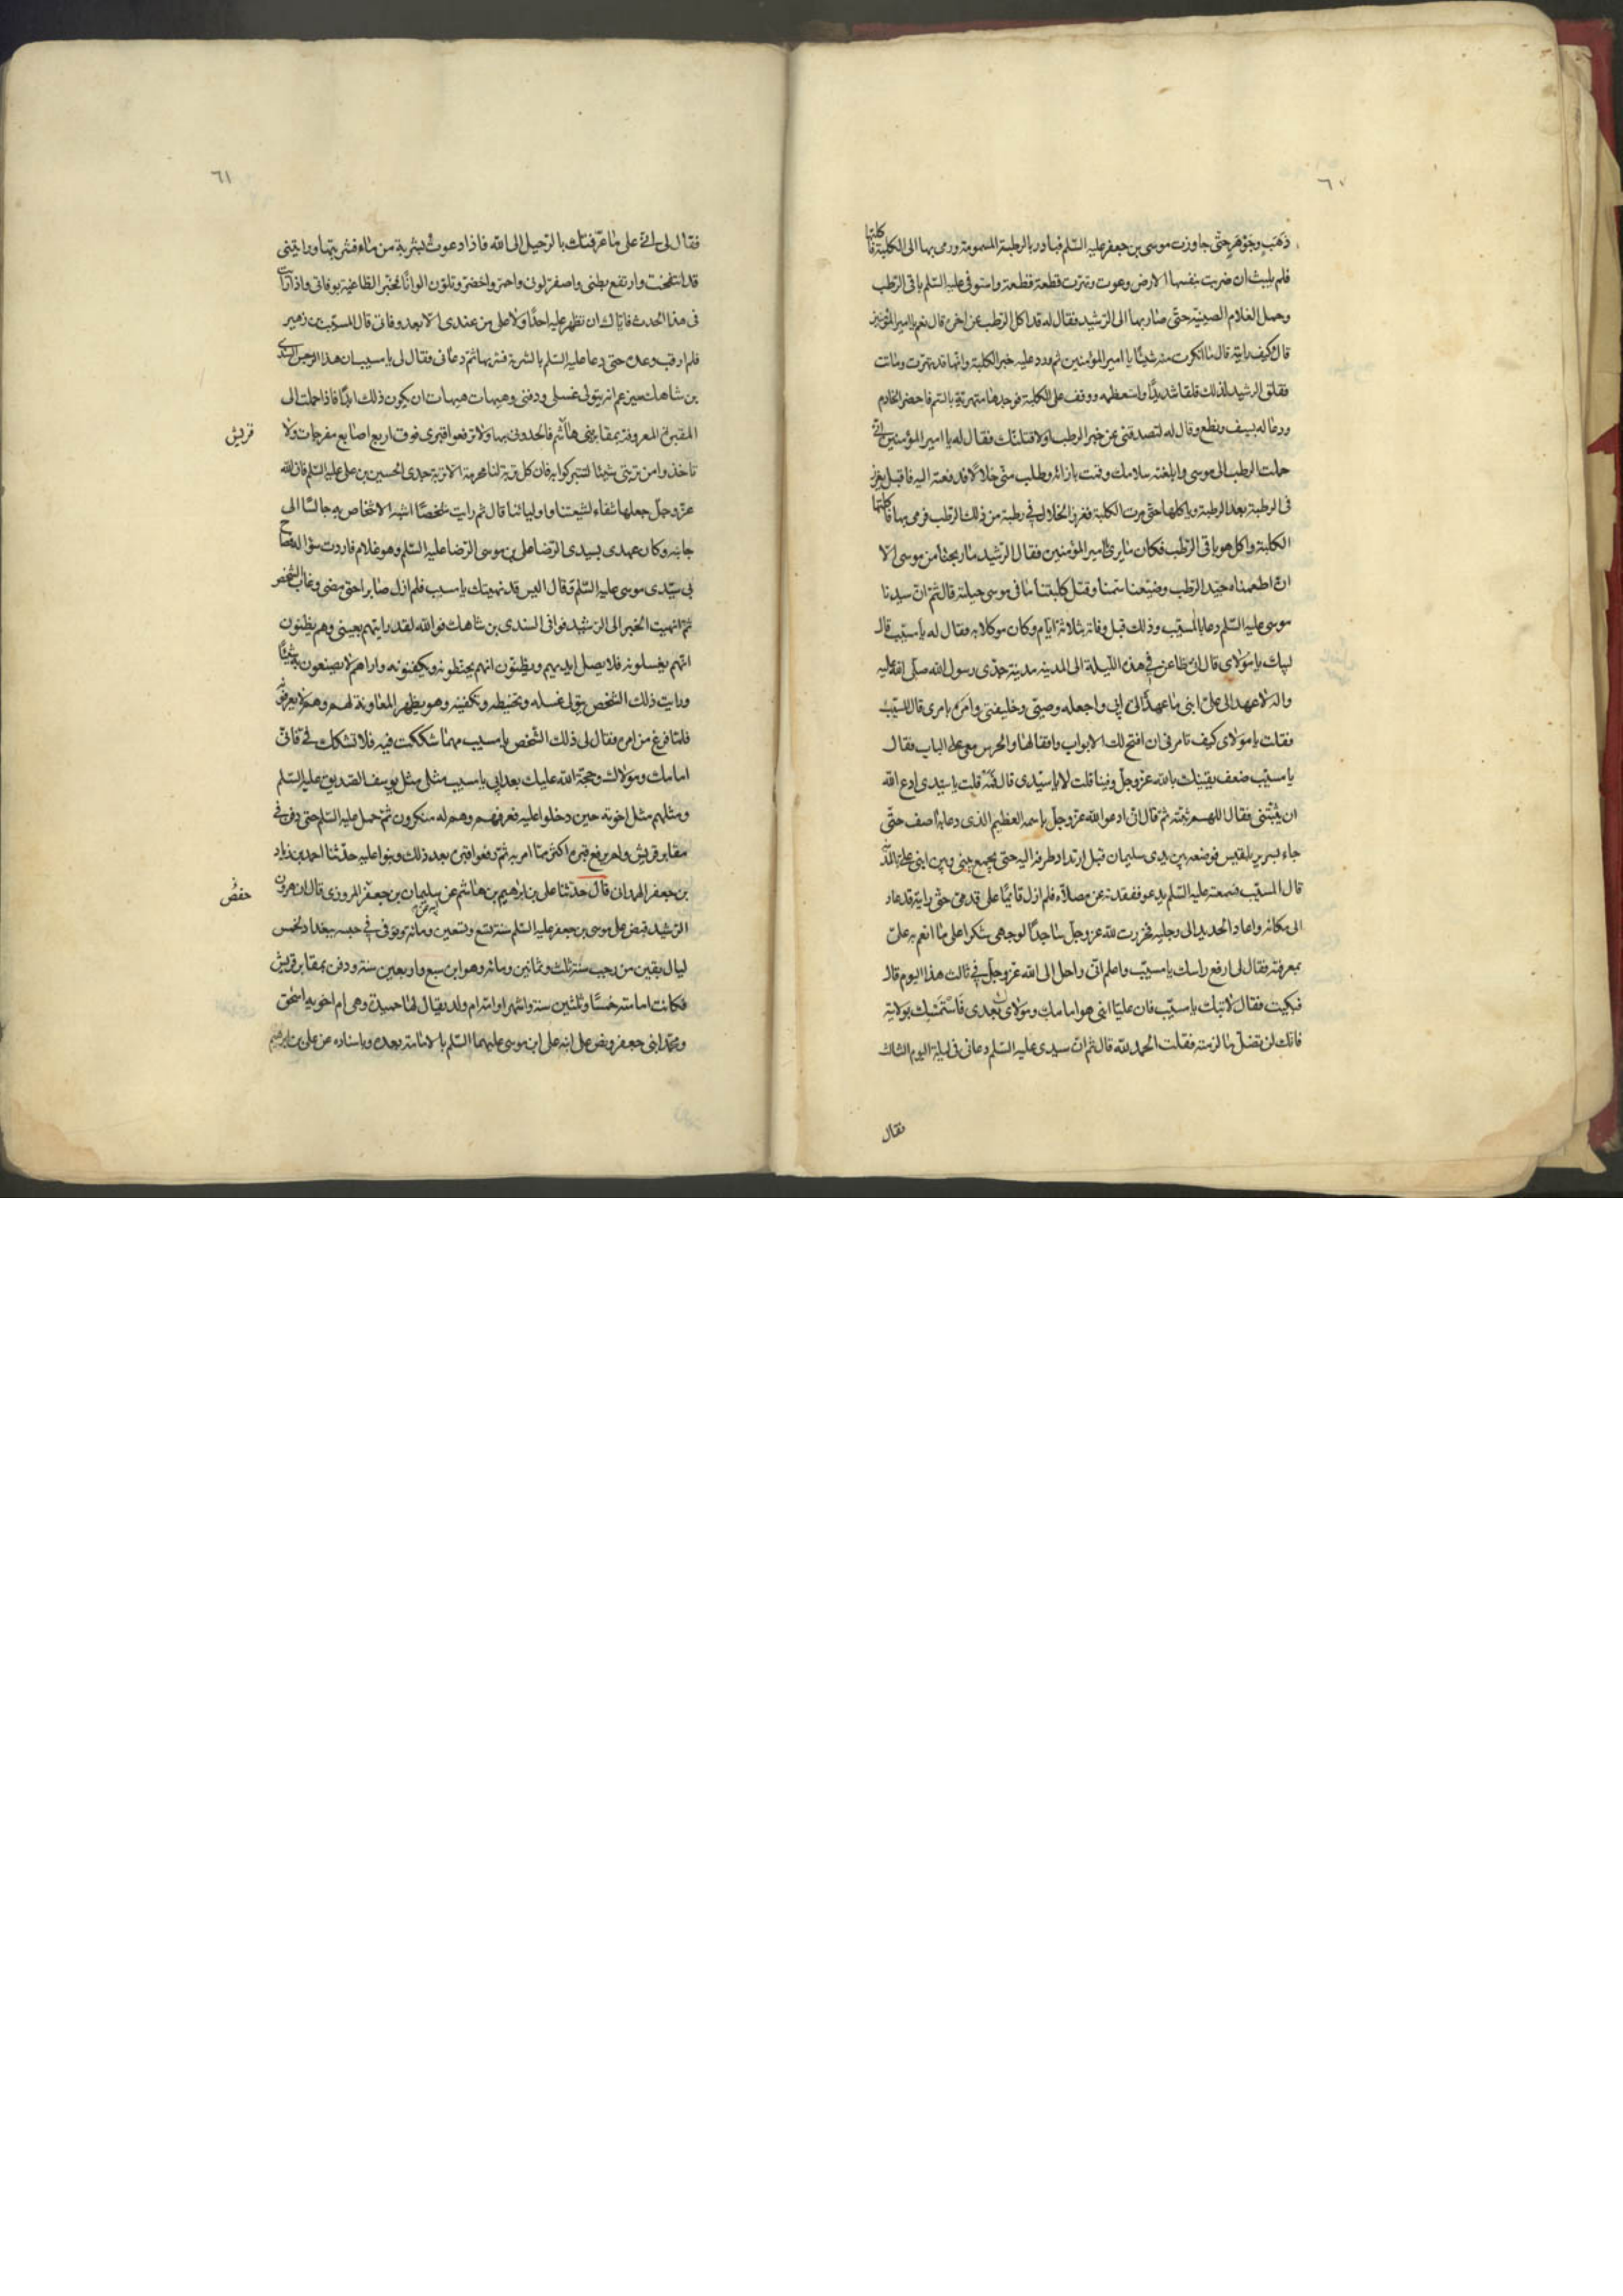 ٦٠
ذهب وجوهر حتى جاوزت موسى بن جعفر عليه السلم فبادر بالرطبة المسمومة ورمى بها الى الكلبة فاكلتها
فلم يلبث ان ضربت بنفسها الارض وعوت وتهرت قطعة قطعة واستوفى عليه السلم باقى الرطب
وحمل الغلام الصينية حتى صار بها الى الرشيد فقال له قد اكل الرطب عن اخره قال نعم يا امير المؤمنين
قال وكيف رايته قال ما انكرت منه شيئا يا امير المؤمنين ثم ورد عليه خبر الكلبة وانها قد تهرت وماتت
فقلق الرشيد لذلك قلقا شديدا واستعظمه ووقف على الكلبة فوجدها متهرئة بالسم فاحضر الخادم
ودعا له بسيف ونطع وقال له لتصدقنى عن خبر الرطب اولاقتلنك فقال له يا امير المؤمنين انى
حملت الرطب الى موسى وابلغته سلامك وقمت بازائه وطلب منى خلالا فدفعته اليه فاقبل يغرز
فى الرطبة بعد الرطبة وياكلها حتى مرت الكلبة فغرز الخلال فى رطبة من ذلك الرطب فرمى بها فاكلتها
الكلبة واكل هو باقى الرطب فكان ما يرى امير المؤمنين فقال الرشيد ما ربحنا من موسى الا
انا اطعمناه جيد الرطب وضيعنا سمنا وقتل كلبتنا ما فى موسى حيلة قال ثم ان سيدنا
موسى عليه السلم دعا بالمسيب وذلك قبل وفاته بثلاثة ايام وكان موكلا به فقال له يا مسيب قال
لبيك يا مولاى قال انى ظاعن فى هذه الليلة الى المدينه مدينة جدى رسول الله صلى الله عليه
واله لاعهد الى على ابنى ما عهده الى ابى واجعله وصيى وخليفتى وامره بامرى قال المسيب
فقلت يا مولاى كيف تامرنى ان افتح لك الابواب واقفالها والحرس معى على الباب فقال
يا مسيب ضعف يقينك بالله عز وجل وفينا قلت لا يا سيدى قال فمه قلت يا سيدى ادع الله
ان يثبتنى فقال اللهم ثبته ثم قال انى ادعوا الله عز وجل باسمه العظيم الذى دعا به آصف حتى
جاء بسرير بلقيس فوضعه بين يدى سليمان قبل ارتداد طرفه اليه حتى يجمع بينى وبين ابنى على بالمدينة
قال المسيب فسمعته عليه السلم يدعو ففقدته عن مصلاه فلم ازل قائما على قدمى حتى رايته قد عاد
الى مكانه واعاد الحديد الى رجليه فخررت لله عز وجل ساجدا لوجهى شكرا على ما انعم به على
بمعرفته فقال لى ارفع راسك يا مسيب واعلم انى راحل الى الله عز وجل فى ثالث هذا اليوم قال
فبكيت فقال لا تبك يا مسيب فان عليا ابنى هو امامك ومولاى بعدى فاستمسك بولايته
فانك لن تضل ما لزمته فقلت الحمد لله قال ثم ان سيدى عليه السلم دعانى فى ليلة اليوم الثالث
فقال
٦١
فقال لى انى على ما عرفتك بالرحيل الى الله فاذا دعوت بشربة من ماء فشربتها ورايتنى
قد انتفخت وارتفع بطنى واصفر لونى واحمر واخضر وتلون الوانا فخبر الطاغية بوفاتى واذا رايت
فى هذا الحدث فاياك ان تظهر عليه احدا ولا على من عندى الا بعد وفاتى قال المسيب بن زهير
فلم ارقب وعده حتى دعا عليه السلم بالشربة فشربها ثم دعانى فقال لى يا مسيب ان هذا الرجس السندى
بن شاهك سيزعم انه يتولى غسلى ودفنى وهيهات هيهات ان يكون ذلك ابدا فاذا حملت الى
المقبرة المعروفة بمقابر بنى هاشم فالحدونى بها ولا ترفعوا قبرى فوق اربع اصابع مفرجات ولا
قريش
تاخذوا من تربتى شيئا لتتبركوا به فان كل تربة لنا محرمة الا تربة جدى الحسين بن على عليه السلم فان الله
عز وجل جعلها شفاء لشيعتنا واوليائنا قال ثم رايت شخصا اشبه الاشخاص به جالسا الى
جانبه وكان عهدى بسيدى الرضا على بن موسى الرضا عليه السلم وهو غلام فاردت سؤاله فصاح
بى سيدى موسى عليه السلم وقال اليس قد نهيتك يا مسيب فلم ازل صابرا حتى مضى وغاب الشخص
ثم انهيت الخبر الى الرشيد فوافى السندى بن شاهك فوالله لقد رايتهم بعينى وهم يظنون
انهم يغسلونه فلا يصل ايديهم ويظنون انهم يحنطونه ويكفنونه واراهم لا يصنعون به شيئا
ورايت ذلك الشخص يتولى غسله وتحنيطه وتكفينه وهو يظهر المعاونة لهم وهم لا يعرفونه
فلما فرغ من امره فقال لى ذلك الشخص يا مسيب مهما شككت فيه فلا تشكن فى فانى
امامك ومولاك وحجة الله عليك بعد ابى يا مسيب مثلى مثل يوسف الصديق عليه السلم
ومثلهم مثل اخوته حين دخلوا عليه فعرفهم وهم له منكرون ثم حمل عليه السلم حتى دفن فى
مقابر قريش ولم يرفع قبره اكثر مما امر به ثم رفعوا قبره بعد ذلك وبنوا عليه حدثنا احمد بن زياد
بن جعفر الهمدانى قال حدثنا على بن ابرهيم بن هاشم عن سليمان بن جعفر المروزى قال ان هرون
حفص
الرشيد قبض على موسى بن جعفر عليه السلم سنة تسع وسبعين ومائة وتوفى فى حبسه ببغداد لخمس
ليال بقين من رجب سنة ثلث وثمانين ومائه وهو ابن سبع واربعين سنة ودفن بمقابر قريش
فكانت امامته خمسا وثلثين سنة واشهرا وامه ام ولد يقال لها حميدة وهى ام اخويه اسحق
ومحمد ابنى جعفر ونص على ابنه على ابن موسى عليهما السلم بالامامة بعده وباسناده عن على بن ابرهيم